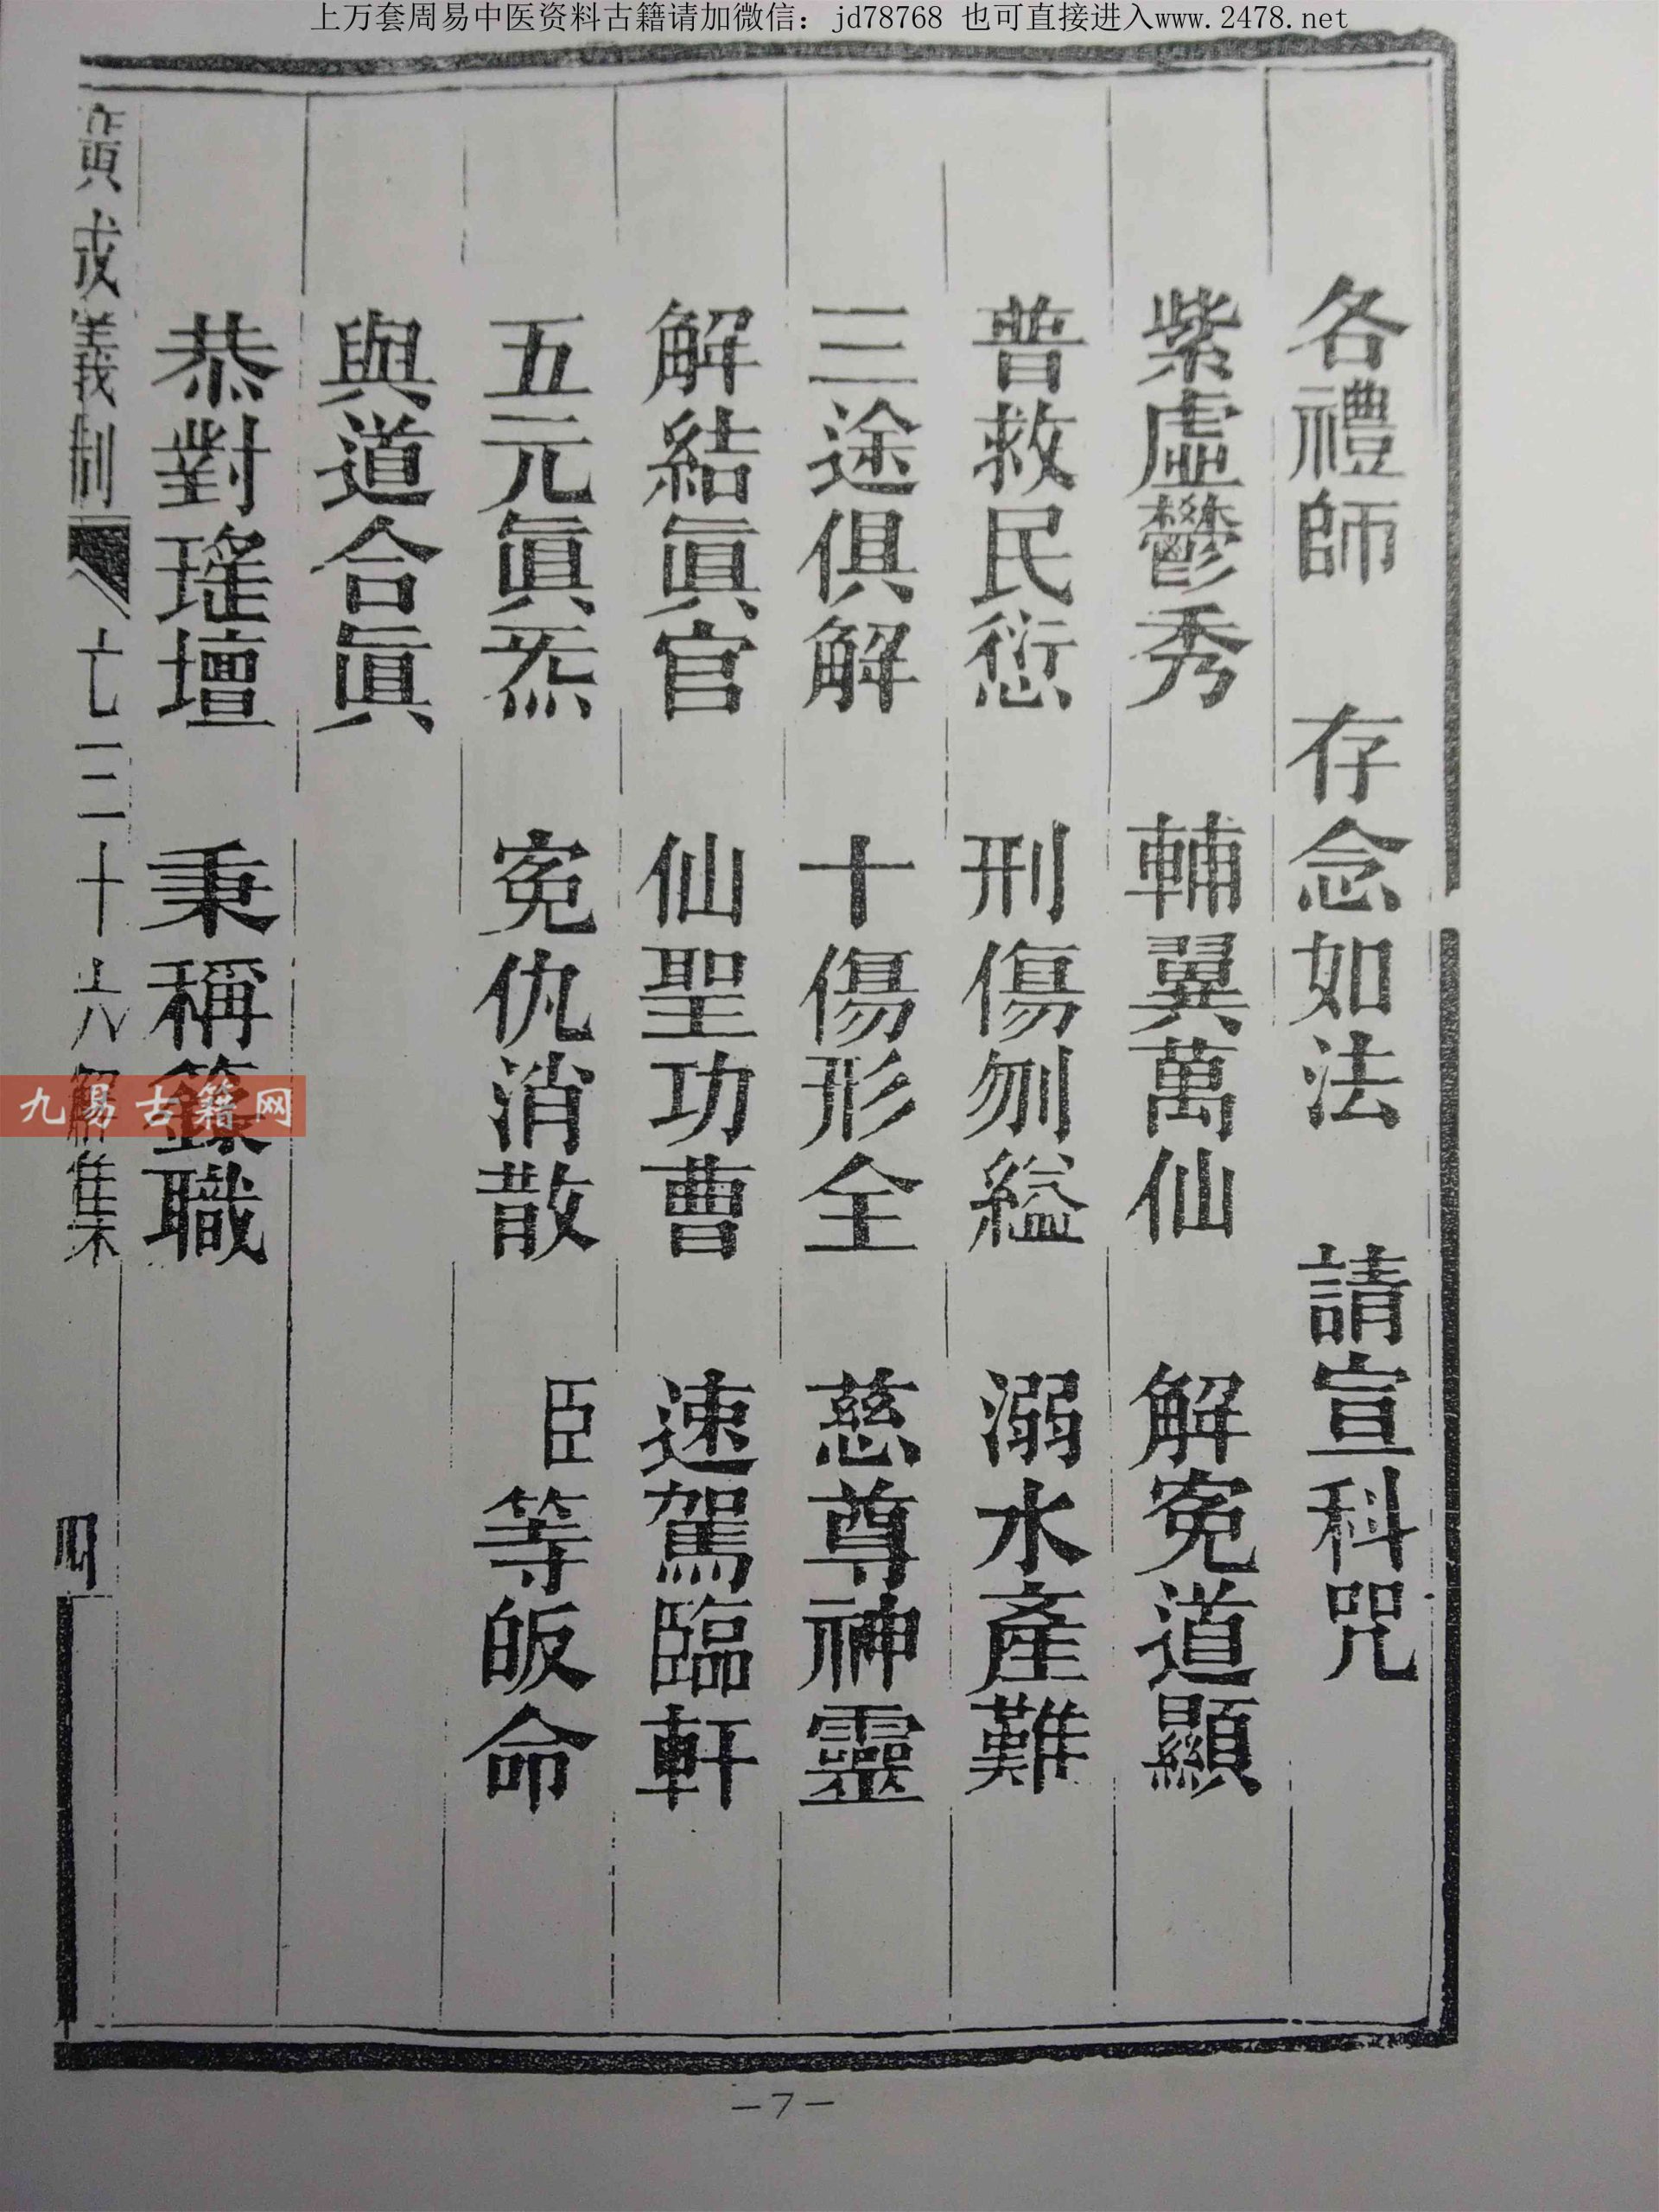 上万套周易中医资料古籍请加微信：jd78768 也可直接进入www.2478.net
各禮師 存念如法 請宣科咒
紫虛鬱秀 輔翼萬仙 解寃道顯
普救民愆 刑傷刎縊 溺水產難
三途俱解 十傷形全 慈尊神靈
解結眞官 仙聖功曹 速駕臨軒
五元眞炁 寃仇消散 臣等皈命
與道合眞
恭對瑤壇 秉稱籙職
廣成儀制 亡三十六解集 四
九易古籍网
—7—